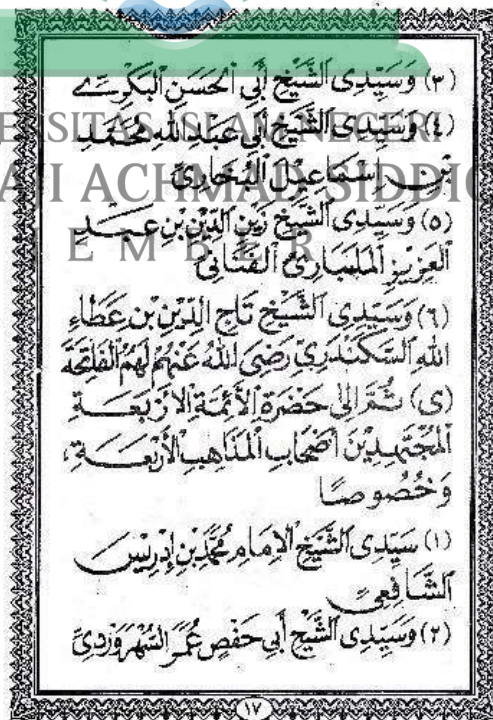 (٣) وَسَيِّدِى الشَّيْخِ أَبِى الْحَسَنِ الْبَكْرِىِّ
(٤) وَسَيِّدِى الشَّيْخِ أَبِى عَبْدِ اللهِ مُحَمَّدِ
بْنِ اِسْمَاعِيْلَ الْبُخَارِىِّ
(٥) وَسَيِّدِى الشَّيْخِ زَيْنِ الدِّيْنِ بْنِ عَبْدِ
الْعَزِيْزِ الْمَلَيْبَارِىِّ الْفَنَانِىِّ
(٦) وَسَيِّدِى الشَّيْخِ تَاجِ الدِّيْنِ بْنِ عَطَاءِ
اللهِ السَّكَنْدَرِىِّ رَضِىَ اللهُ عَنْهُمْ لَهُمُ الْفَاتِحَةَ
(ى) ثُمَّ اِلَى حَضْرَةِ الْأَئِمَّةِ الْأَرْبَعَةِ
الْمُجْتَهِدِيْنَ اَصْحَابِ الْمَذَاهِبِ الْأَرْبَعَةِ،
وَخُصُوصًا
(١) سَيِّدِى الشَّيْخِ الْاِمَامِ مُحَمَّدِ بْنِ إِدْرِيْسَ
الشَّافِعِىِّ
(٢) وَسَيِّدِى الشَّيْخِ أَبِى حَفْصٍ عُمَرَ السُّهْرَوَرْدِىِّ
١٧
ERSITAS ISLAM NEGERI
AJI ACHMAD SIDDIQ
E M B E R